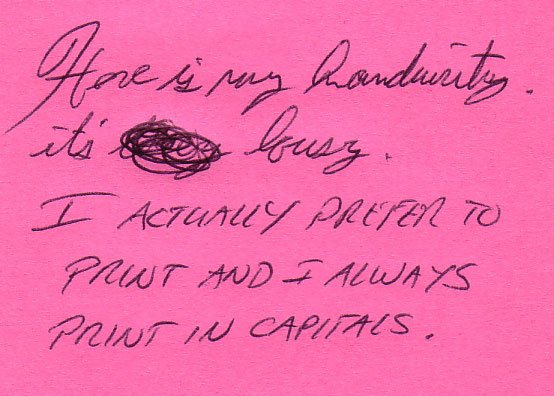 Here is my handwriting.
it's lousy.
I ACTUALLY PREFER TO
PRINT AND I ALWAYS
PRINT IN CAPITALS.